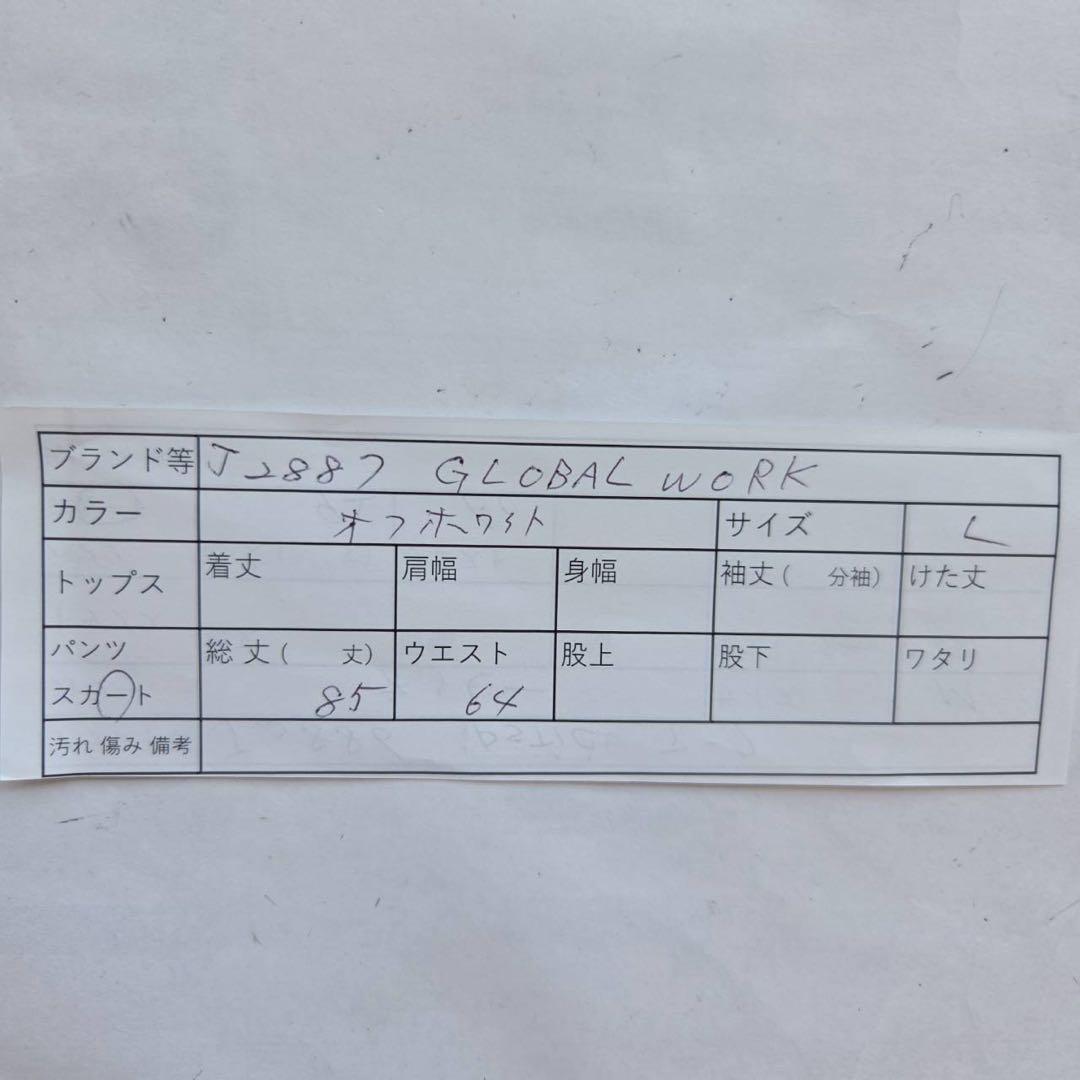 ブランド等 J2887 GLOBAL WORK
カラー オフホワイト サイズ L
トップス 着丈 肩幅 身幅 袖丈( 分袖) けた丈
パンツ 総丈( 丈) ウエスト 股上 股下 ワタリ
スカート 85 64
汚れ 傷み 備考